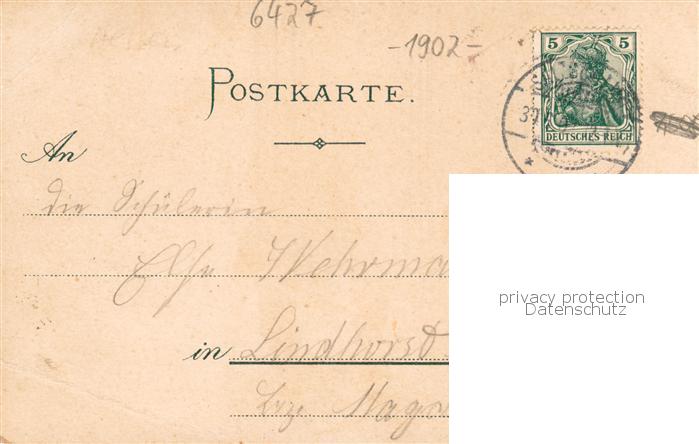 6427
-1902-
5 5
DEUTSCHES REICH
POSTKARTE.
An
die Schülerin
Else Wehrma
in Lindhorst
bez. Magd
privacy protection
Datenschutz